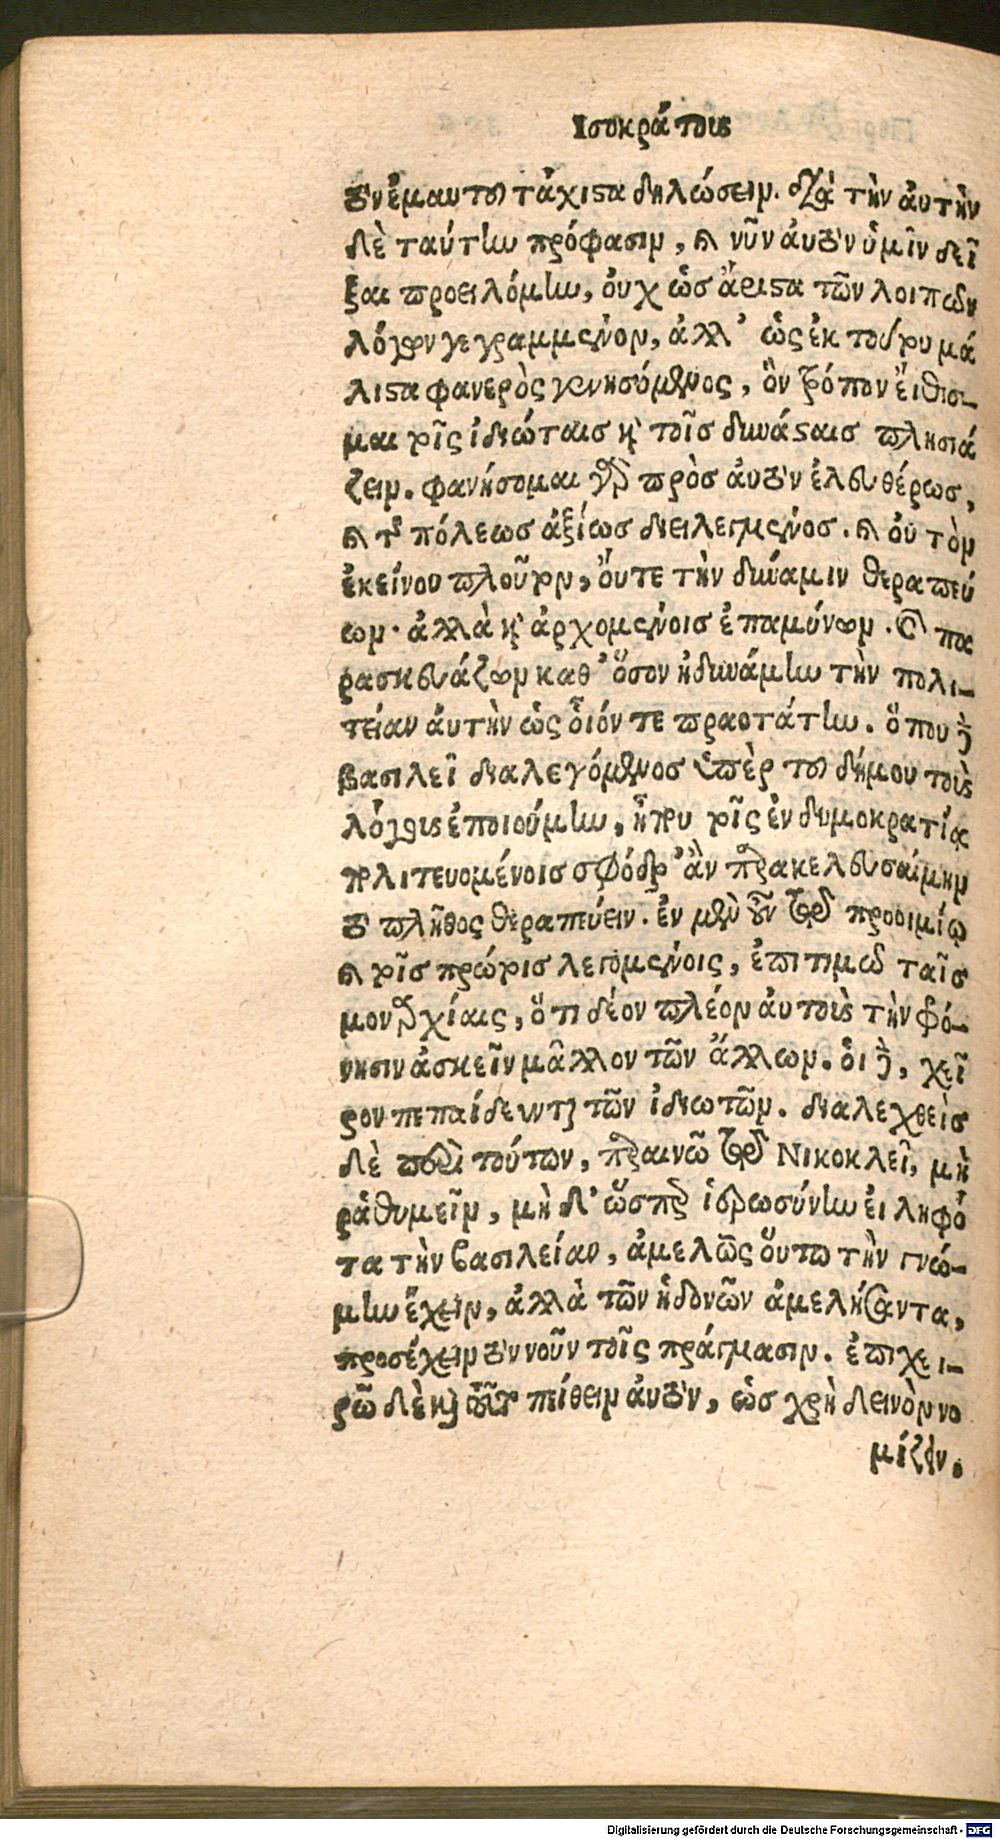 Ισοκράτους
τὸν ἐμαυτοῦ τάχιστα δηλώσειν. διὰ τὴν αὐτὴν
δὲ ταύτην πρόφασιν, καὶ νῦν αὐτὸν ὑμῖν δεῖ
ξαι προειλόμην, οὐχ ὡσ ἄριστα τῶν λοιπῶν
λόγον γεγραμμένον, ἀλλ' ὡς ἐκ τούτου μά
λιστα φανερὸς γενησόμενος, ὃν τρόπον εἴθισ-
μαι τοῖς ἰδιώταισ καὶ τοῖσ δυνάσταισ πλησιά
ζειν. φανήσομαι γὰρ πρὸσ αὐτὸν ἐλευθέρωσ,
καὶ τῆς πόλεωσ ἀξίωσ διειλεγμένοσ. καὶ οὐ τὸν
ἐκείνου πλοῦτον, οὔτε τὴν δύναμιν θεραπεύ
ων· ἀλλὰ καὶ ἀρχομένοισ ἐπαμύνων. καὶ πα
ρασκευάζων καθ' ὅσον ἠδυνάμην τὴν πολι-
τείαν αὐτὴν ὡς οἷόν τε πραοτάτην. ὅπου δὲ
βασιλεῖ διαλεγόμενοσ ὑπὲρ τοῦ δήμου τοὺς
λόγους ἐποιούμην, ἦπου τοῖς ἐν δημοκρατίᾳ
πολιτευομένοισ σφόδρ' ἂν παρακελευσαίμην
τὸ πλῆθος θεραπεύειν. ἐν μὲν οὖν τῷ προοιμίῳ
καὶ τοῖσ πρώτοισ λεγομένοις, ἐπιτιμῶ ταῖσ
μοναρχίαις, ὅτι δέον πλέον αὐτοὺς τὴν φρό-
νησιν ἀσκεῖν μᾶλλον τῶν ἄλλων. οἱ δὲ, χεῖ
ρον πεπαίδευνται τῶν ἰδιωτῶν. διαλεχθεὶσ
δὲ περὶ τούτων, παραινῶ τῷ Νικοκλεῖ, μὴ
ῥᾳθυμεῖν, μὴ δ' ὥσπερ ἱερωσύνην εἰληφό
τα τὴν βασιλείαν, ἀμελῶς οὕτω τὴν γνώ-
μην ἔχειν, ἀλλὰ τῶν ἡδονῶν ἀμελήσαντα,
προσέχειν τὸν νοῦν τοῖς πράγμασιν. ἐπιχει-
ρῶ δὲ καὶ τοῦτο πείθειν αὐτὸν, ὡσ χρὴ δεινὸν νο
μίζειν.
Digitalisierung gefördert durch die Deutsche Forschungsgemeinschaft - DFG